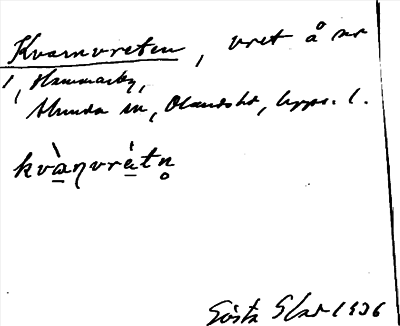 Kvarnvreten, vret å nr
1, Hammarby,
Almunda sn, Olandshd, Upps. l.
kvà̱ŋvrȧ̱tn̥
Gösta 1936